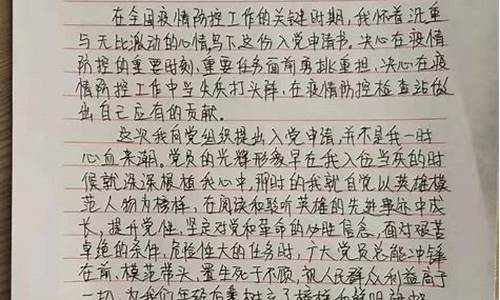 在全国疫情防控工作的关键时期,我怀着沉重
与无比激动的心情写下这份入党申请书。决心在疫情
防控的重要时刻、重要任务面前勇挑重担、决心在疫
情防控工作中当先队打头阵,在疫情防控检查站做
出自己应有的贡献。
这次我向党组织提出入党申请,并不是我一时
心血来潮。党员的光辉形象早在我入伍当天的时
候就深深根植我心中,那时的我就自觉以英雄模
范人物为榜样,在阅读和聆听英雄的先进事迹中成
长,提升党性,坚定对党和革命的必胜信念,面对艰苦
卓绝的条件、危险性大的任务时,广大党员总能冲锋
在前、模范带头、置生死于不顾,视人民群众利益高于
一切,为我们年轻